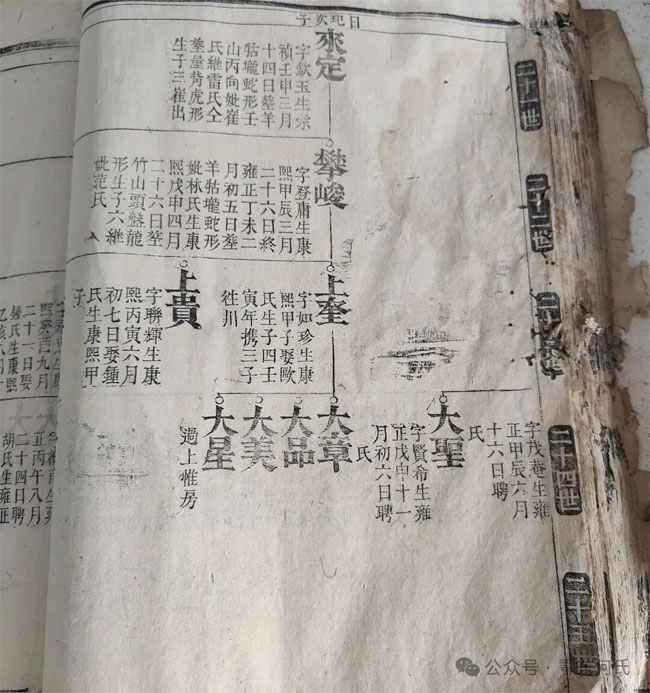 二十一世
來定
字欽玉生崇
禎壬申三月
十四日葬羊
牯壠蛇形壬
山丙向妣崔
氏継雷氏仝
背虎形
生子三崔出
攀峻
字登庸生康
熙甲辰三月
二十六日終
雍正丁未二
月初五日塟
羊牯壠蛇形
妣林氏生康
熙戊申四月
二十六日塟
竹山頭盤龍
形生子六継
妣范氏
上奎
字如珍生康
熙甲子娶歐
氏生子四壬
寅年携三子
徃川
上貴
字聯輝生康
熙丙寅六月
初七日娶鍾
氏生康熙甲
子
二十四世
大聖
字茂菴生雍
正甲辰六月
十六日聘
氏
大章
字賢希生雍
正戊申十一
月初六日聘
氏
大品
大美
大星
過上惟房
二十五世
熙癸酉九月
二十一日娶
鍾氏生康熙
乙亥八月
正丙午八月
二十四日聘
胡氏生雍正
公众号·
何氏